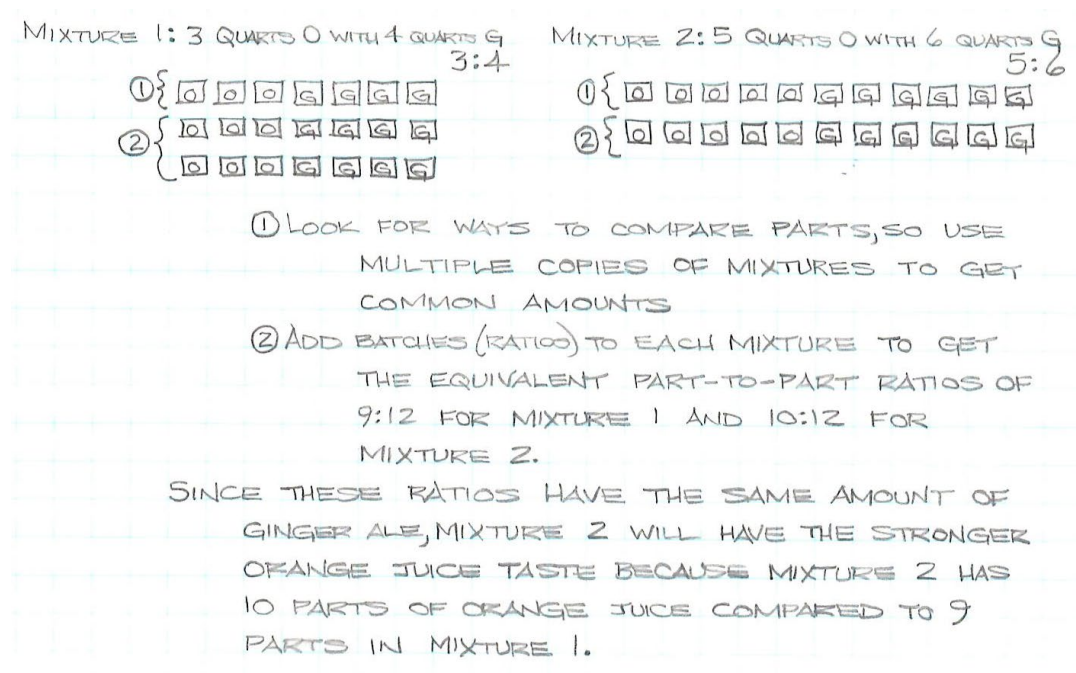 MIXTURE 1: 3 QUARTS O WITH 4 QUARTS G
3:4
① O O O G G G G
② O O O G G G G
O O O G G G G
MIXTURE 2: 5 QUARTS O WITH 6 QUARTS G
5:6
① O O O O O G G G G G G
② O O O O O G G G G G G
① LOOK FOR WAYS TO COMPARE PARTS, SO USE
MULTIPLE COPIES OF MIXTURES TO GET
COMMON AMOUNTS
② ADD BATCHES (RATIOS) TO EACH MIXTURE TO GET
THE EQUIVALENT PART-TO-PART RATIOS OF
9:12 FOR MIXTURE 1 AND 10:12 FOR
MIXTURE 2.
SINCE THESE RATIOS HAVE THE SAME AMOUNT OF
GINGER ALE, MIXTURE 2 WILL HAVE THE STRONGER
ORANGE JUICE TASTE BECAUSE MIXTURE 2 HAS
10 PARTS OF ORANGE JUICE COMPARED TO 9
PARTS IN MIXTURE 1.